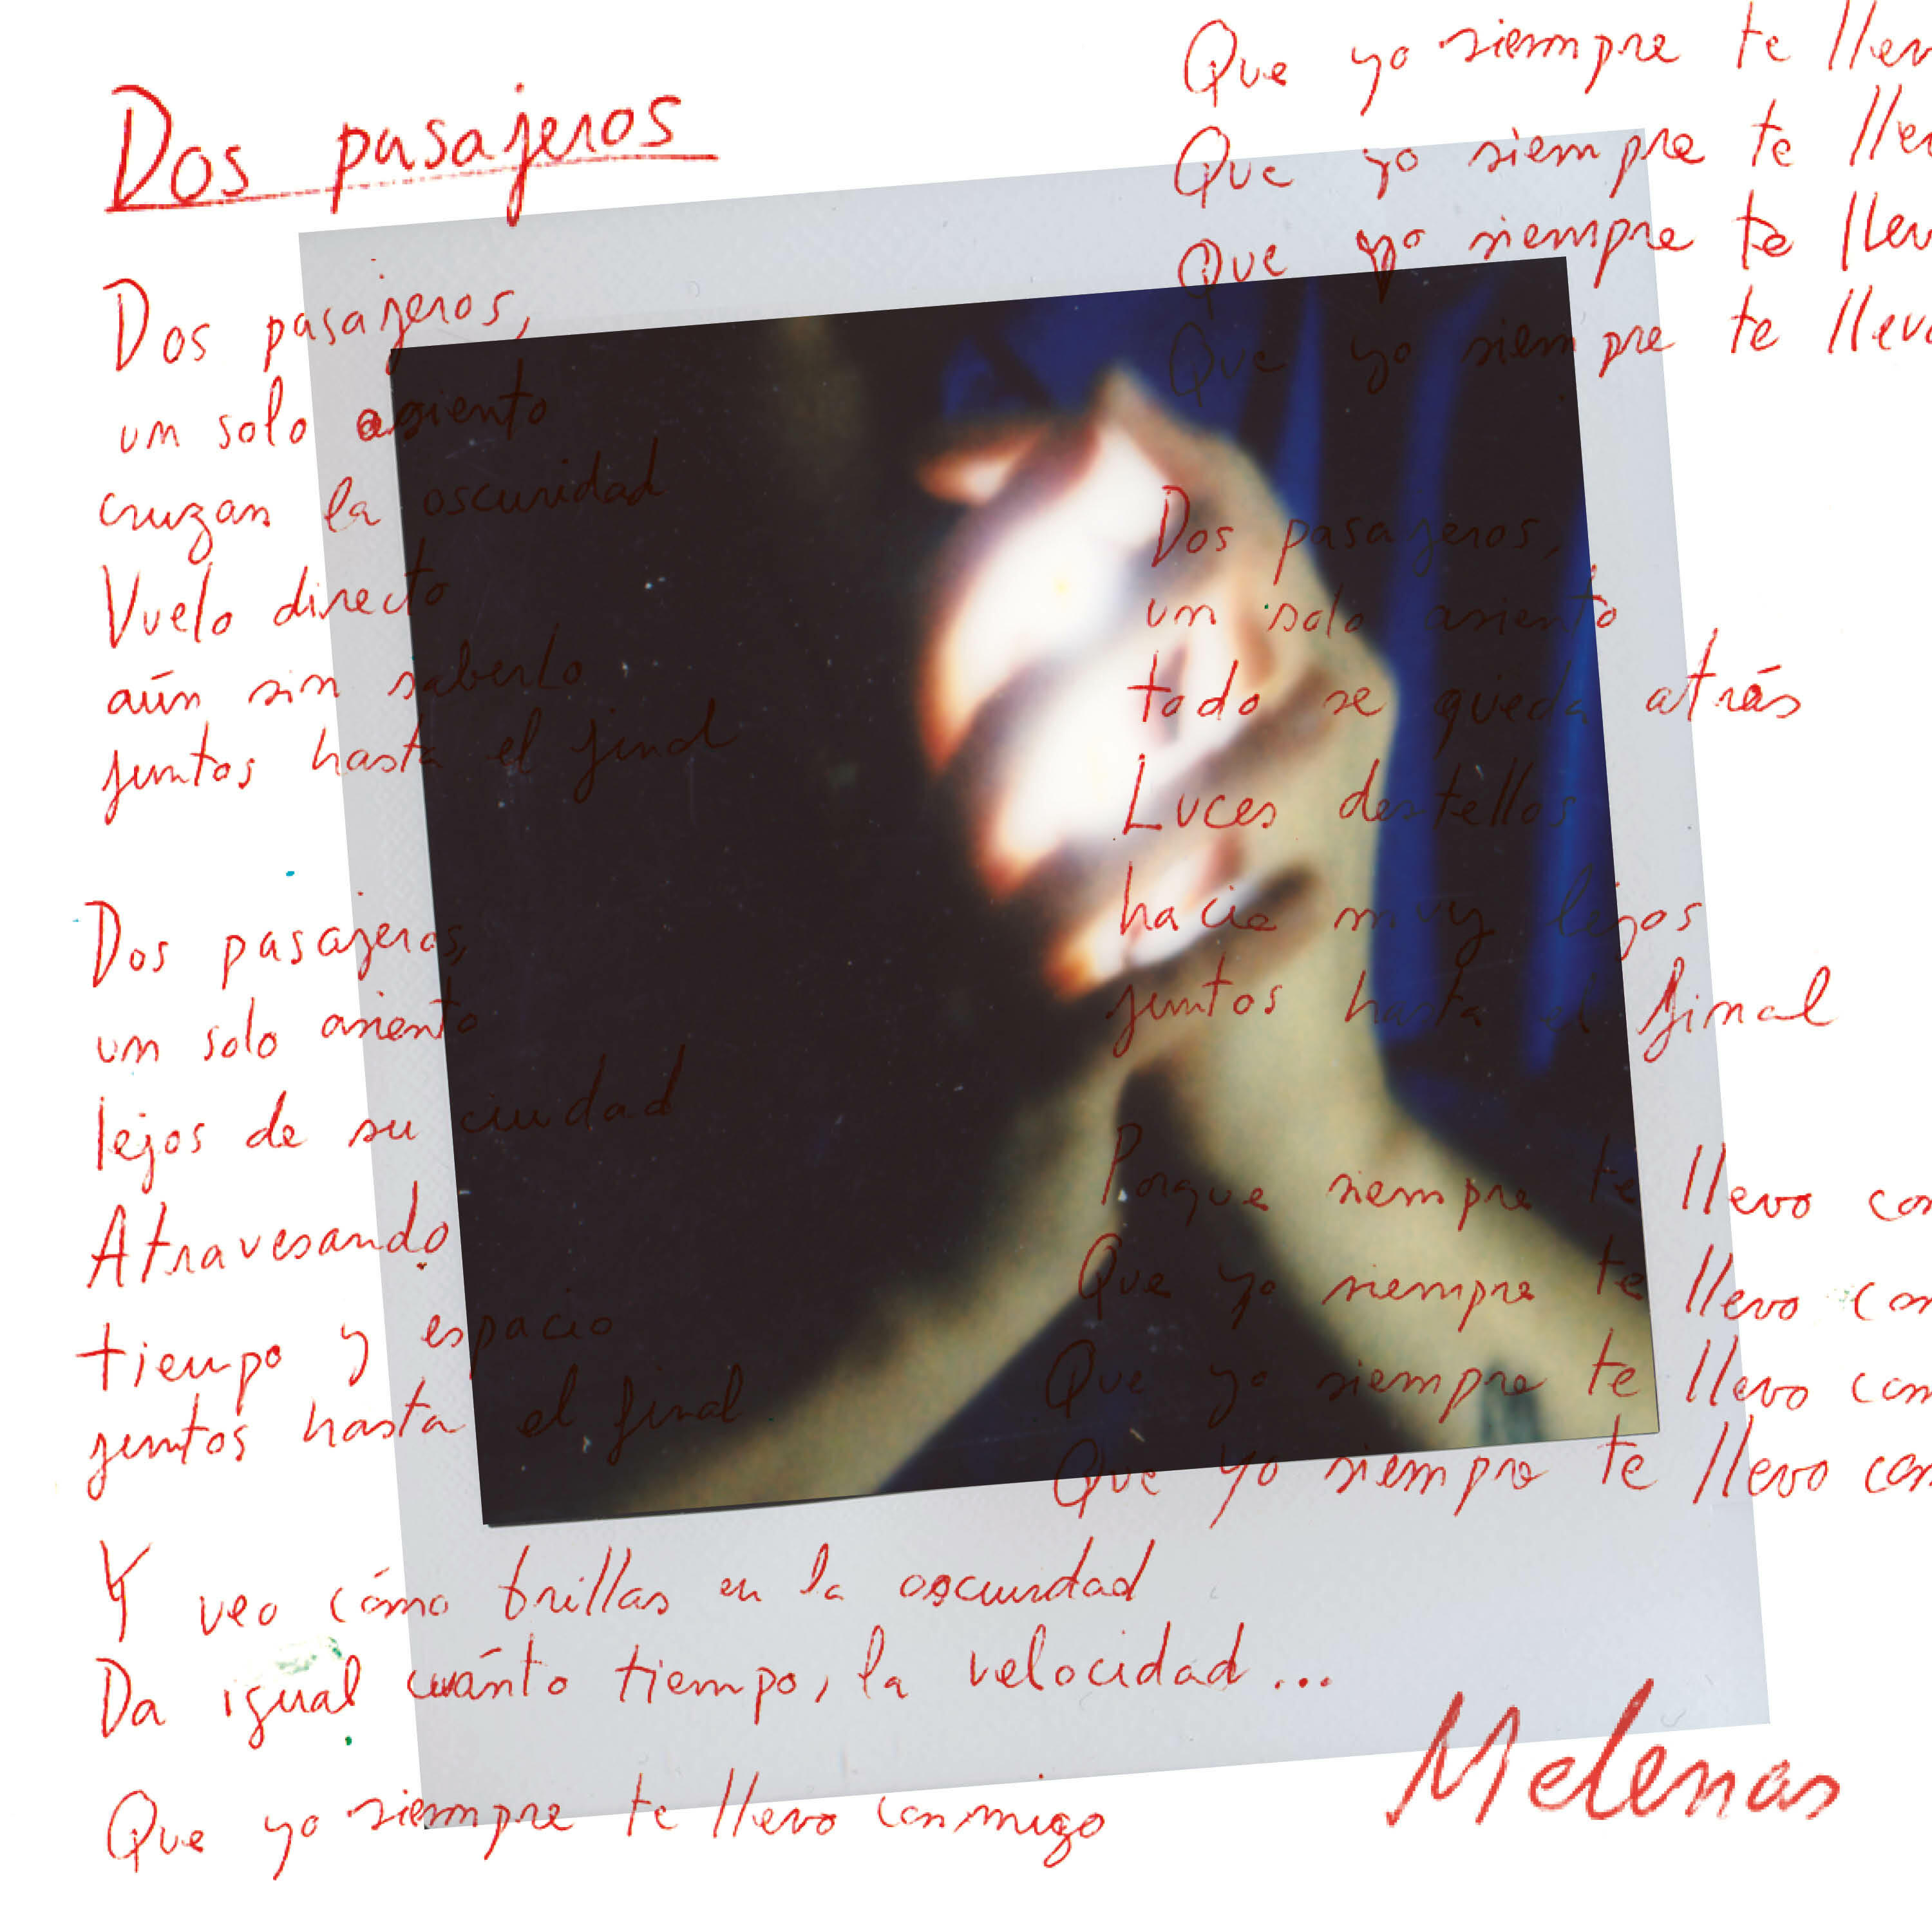 Dos pasajeros
Dos pasajeros,
un solo asiento
cruzan la oscuridad
Vuelo directo
aún sin saberlo
juntos hasta el final
Dos pasajeros,
un solo asiento
lejos de su ciudad
Atravesando
tiempo y espacio
juntos hasta el final
Y veo cómo brillas en la oscuridad
Da igual cuánto tiempo, la velocidad...
Que yo siempre te llevo conmigo
Que yo siempre te llev
Que yo siempre te lle
Que yo siempre te llev
Que yo siempre te llevo
Dos pasajeros,
un solo asiento
todo se queda atrás
Luces destellos
hacia muy lejos
juntos hasta el final
Porque siempre te llevo con
Que yo siempre te llevo con
Que yo siempre te llevo con
Que yo siempre te llevo con
Melenas